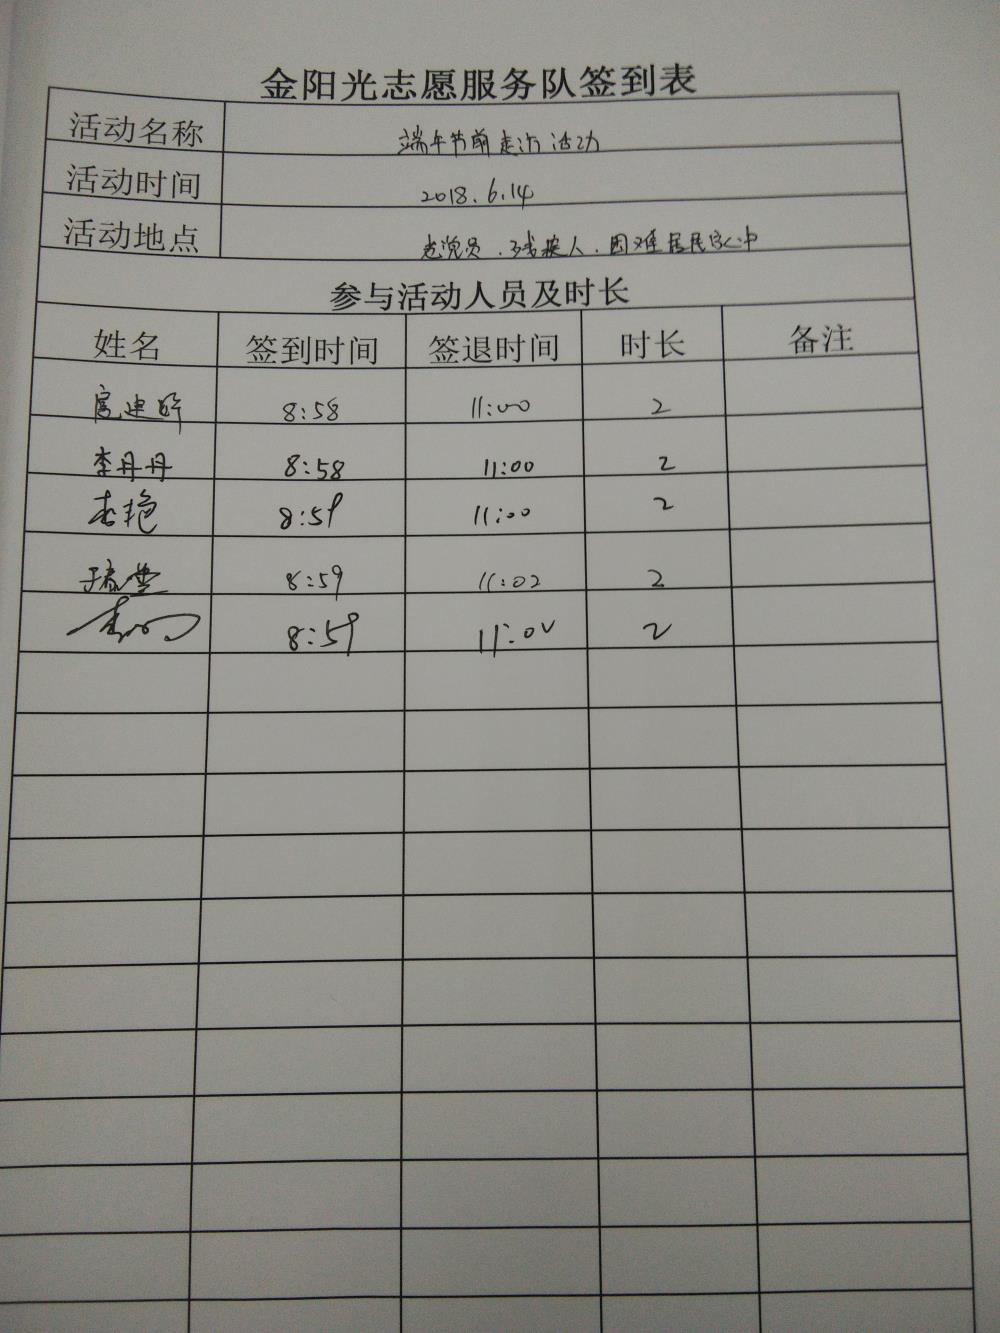 金阳光志愿服务队签到表
活动名称 端午节前走访活动
活动时间 2018.6.14
活动地点 老党员、残疾人、困难居民家中
参与活动人员及时长
姓名 签到时间 签退时间 时长 备注
8:58 11:00 2
李丹丹 8:58 11:00 2
李艳 8:59 11:00 2
8:59 11:02 2
8:59 11:02 2